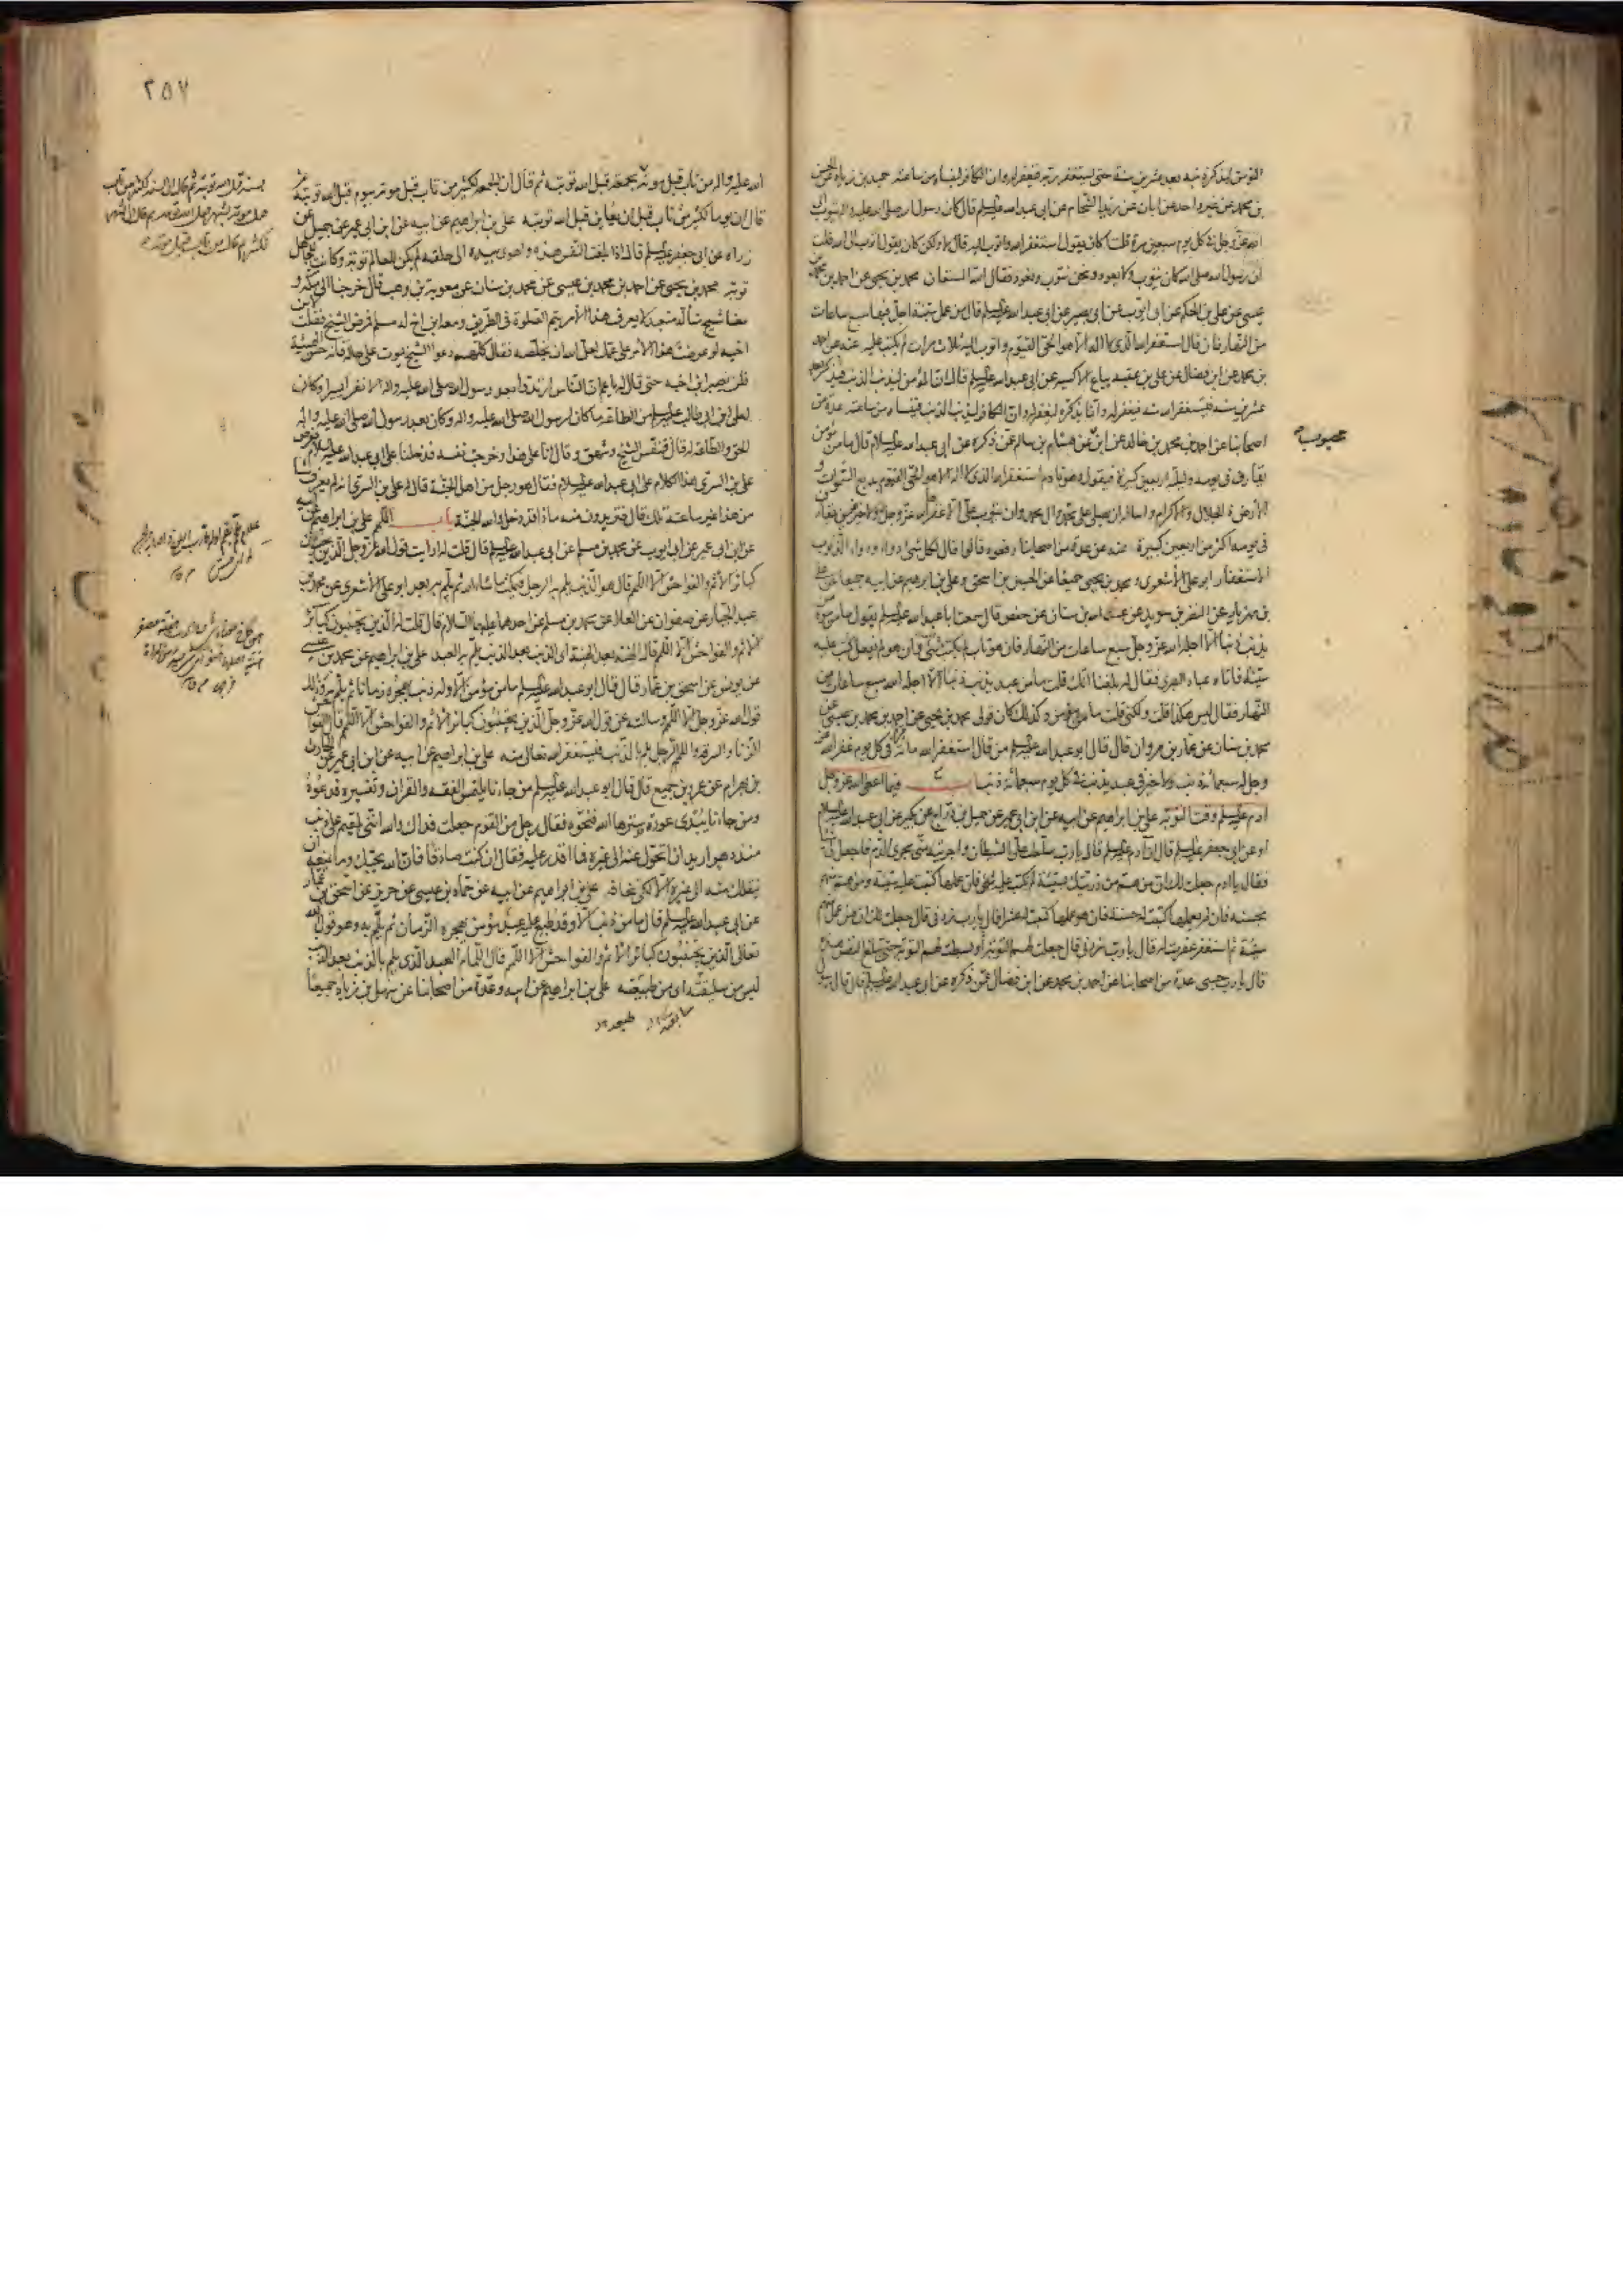 المؤمن ليذكره ذنبه بعد عشرين سنة حتى يستغفر ربه فيغفر له وان الكافر لينساه من ساعته حميد بن زياد عن الحسن
بن محمد عن غير واحد عن ابان عن زيد الشحام عن ابى عبد الله عليه السلم قال كان رسول الله صلى الله عليه واله يتوب الى
الله عز وجل فى كل يوم سبعين مرة قلت اكان يقول استغفر الله واتوب اليه قال لا ولكن كان يقول اتوب الى الله قلت
ان رسول الله صلى الله كان يتوب ولا يعود ونحن نتوب ونعود فقال الله المستعان محمد بن يحيى عن احمد بن محمد بن
عيسى عن على بن الحكم عن ابى ايوب عن ابى بصير عن ابى عبد الله عليه السلم قال من عمل سيئة اجل فيها سبع ساعات
من النهار فان قال استغفر الله الذى لا اله الا هو الحى القيوم واتوب اليه ثلاث مرات لم يكتب عليه عنه عن احمد
بن محمد عن ابن فضال عن على بن عقبة بياع الاكسية عن ابى عبد الله عليه السلم قال ان المؤمن ليذنب الذنب فيذكر بعد
عشرين سنة فيستغفر الله منه فيغفر له وانما يذكره ليغفر له وان الكافر ليذنب الذنب فينساه من ساعته عدة من
اصحابنا عن احمد بن محمد بن خالد عن ابن عن هشام بن سالم عمن ذكره عن ابى عبد الله عليه السلام قال ما من مؤمن
محبوب
يقارف فى يومه وليلته اربعين كبيرة فيقول وهو نادم استغفر الله الذى لا اله الا هو الحى القيوم بديع السموات و
الارض ذا الجلال والاكرام واسأله ان يصلى على محمد وال محمد وان يتوب على الا غفر الله عز وجل له ولا خير فيمن يقارف
فى يومه اكثر من اربعين كبيرة عنه عن عدة من اصحابنا رفعوه قالوا قال لكل شئ دواء ودواء الذنوب
الاستغفار ابو على الأشعرى ومحمد بن يحيى جميعا عن الحسين بن اسحق وعلى بن ابراهيم عن ابيه جميعا عن على
بن مهزيار عن النضر بن سويد عن عبد الله بن سنان عن حفص قال سمعت ابا عبد الله عليه السلم يقول ما من مؤمن
يذنب ذنبا الا اجله الله عز وجل سبع ساعات من النهار فان هو تاب لم يكتب شئ وان هو لم يفعل كتب عليه
سيئة فاتاه عباد البصرى فقال له بلغنا انك قلت ما من عبد يذنب ذنبا الا اجله الله سبع ساعات من
النهار فقال ليس هكذا قلت ولكنى قلت ما من مؤمن وكذلك كان قولى محمد بن يحيى عن احمد بن محمد بن عيسى عن
محمد بن سنان عن عمار بن مروان قال قال ابو عبد الله عليه السلم من قال استغفر الله مائة مرة فى كل يوم غفر الله عز
وجل له سبعمائة ذنب ولا خير فى عبد يذنب فى كل يوم سبعمائة ذنب باب فيما اعطى الله عز وجل
ادم عليه السلم وقت التوبة على بن ابراهيم عن ابيه عن ابن ابى عمير عن جميل بن دراج عن بكير عن ابى عبد الله عليه السلام
او عن ابى جعفر عليه السلم قال ان آدم عليه السلم قال يا رب سلطت على الشيطان واجريته منى مجرى الدم فاجعل لى شيئا
فقال يا ادم جعلت لك ان من هم من ذريتك بسيئة لم تكتب عليه شئ فان عملها كتبت عليه سيئة ومن هم منهم
بحسنة فان لم يعملها كتبت له حسنة فان هو عملها كتبت له عشرا قال يا رب زدنى قال جعلت لك ان من عمل منهم
سيئة ثم استغفر غفرت له قال يا رب زدنى قال جعلت لهم التوبة او بسطت لهم التوبة حتى تبلغ النفس هذه
قال يا رب حسبى عدة من اصحابنا عن احمد بن محمد عن ابن فضال عمن ذكره عن ابى عبد الله عليه السلم قال قال رسول
٢٥٧
الله عليه واله من تاب قبل موته بجمعة قبل الله توبته ثم قال ان الجمعة لكثير من تاب قبل موته بيوم قبل الله توبته ثم
قال ان يوما لكثير من تاب قبل ان يعاين قبل الله توبته على بن ابراهيم عن ابيه عن ابن ابى عمير عن جميل عن
زراره عن ابى جعفر عليه السلم قال اذا بلغت النفس هذه واهوى بيده الى حلقه لم يكن للعالم توبة وكانت للجاهل
توبة محمد بن يحيى عن احمد بن محمد بن عيسى عن محمد بن سنان عن معوية بن وهب قال خرجنا الى مكة و
معنا شيخ متأله متعبد لا يعرف هذا الامر يتم الصلوة فى الطريق ومعه ابن اخ له مسلم فمرض الشيخ فقلت لابن
اخيه لو عرضت هذا الأمر على عمك لعل الله ان يخلصه فقال كلهم دعوا الشيخ يموت على حاله فانه حسن الهيئة
فلم يصبر ابن اخيه حتى قال له يا عم ان الناس ارتدوا بعد رسول الله صلى الله عليه واله الا نفرا يسيرا وكان
لعلى بن ابى طالب عليه السلم من الطاعة ما كان لرسول الله صلى الله عليه واله وكان بعد رسول الله صلى الله عليه واله
الحق والطاعة له قال فتنفس الشيخ وشهق وقال انا على هذا وخرجت نفسه فدخلنا على ابى عبد الله عليه السلام فعرض
على بن السرى هذا الكلام على ابى عبد الله عليه السلام فقال هو رجل من اهل الجنة قال له على بن السرى انه لم يعرف شيئا
من هذا غير ساعته تلك قال فتريدون منه ماذا قد دخل والله الجنة باب اللمم على بن ابراهيم عن ابيه
عن ابن ابى عمير عن ابى ايوب عن محمد بن مسلم عن ابى عبد الله عليه السلم قال قلت له ارايت قول الله عز وجل الذين يجتنبون
كبائر الأثم والفواحش الا اللمم قال هو الذنب يلم به الرجل فيمكث ما شاء الله ثم يلم به بعد ابو على الأشعرى عن محمد بن
عبد الجبار عن صفوان عن العلا عن محمد بن مسلم عن احدهما عليهما السلام قال قلت له الذين يجتنبون كبائر
الاثم والفواحش الا اللمم قال الهنة بعد الهنة اى الذنب بعد الذنب يلم به العبد على بن ابراهيم عن محمد بن عيسى
عن يونس عن اسحق بن عمار قال قال ابو عبد الله عليه السلم ما من مؤمن الا وله ذنب يهجره زمانا ثم يلم به وذلك
قول الله عز وجل الا اللمم وسألته عن قول الله عز وجل الذين يجتنبون كبائر الأثم والفواحش الا اللمم قال الفواحش
الزنا والسرقة واللمم الرجل يلم بالذنب فيستغفر الله تعالى منه على بن ابراهيم عن ابيه عن ابن ابى عمير عن الحارث
بن بهرام عن عمرو بن جميع قال قال ابو عبد الله عليه السلم من جاءنا يلتمس الفقه والقرآن وتفسيره فدعوه
ومن جاءنا يبدى عورة سترها الله فنحوه فقال رجل من القوم جعلت فداك والله اننى لمقيم على ذنب
منذ دهر اريد ان اتحول عنه الى غيره فما اقدر عليه فقال ان كنت صادقا فان الله يحبك وما يمنعه ان
ينقلك منه الى غيره الا لكى تخافه على بن ابراهيم عن ابيه عن حماد بن عيسى عن حريز عن اسحق بن عمار
عن ابى عبد الله عليه السلم قال ما من ذنب الا وقد طبع عليه عبد مؤمن يهجره الزمان ثم يلم به وهو قول الله
تعالى الذين يجتنبون كبائر الأثم والفواحش الا اللمم قال اللمام العبد الذى يلم بالذنب بعد الذنب
ليس من سليقته اى من طبيعته على بن ابراهيم عن ابيه وعدة من اصحابنا عن سهل بن زياد جميعا